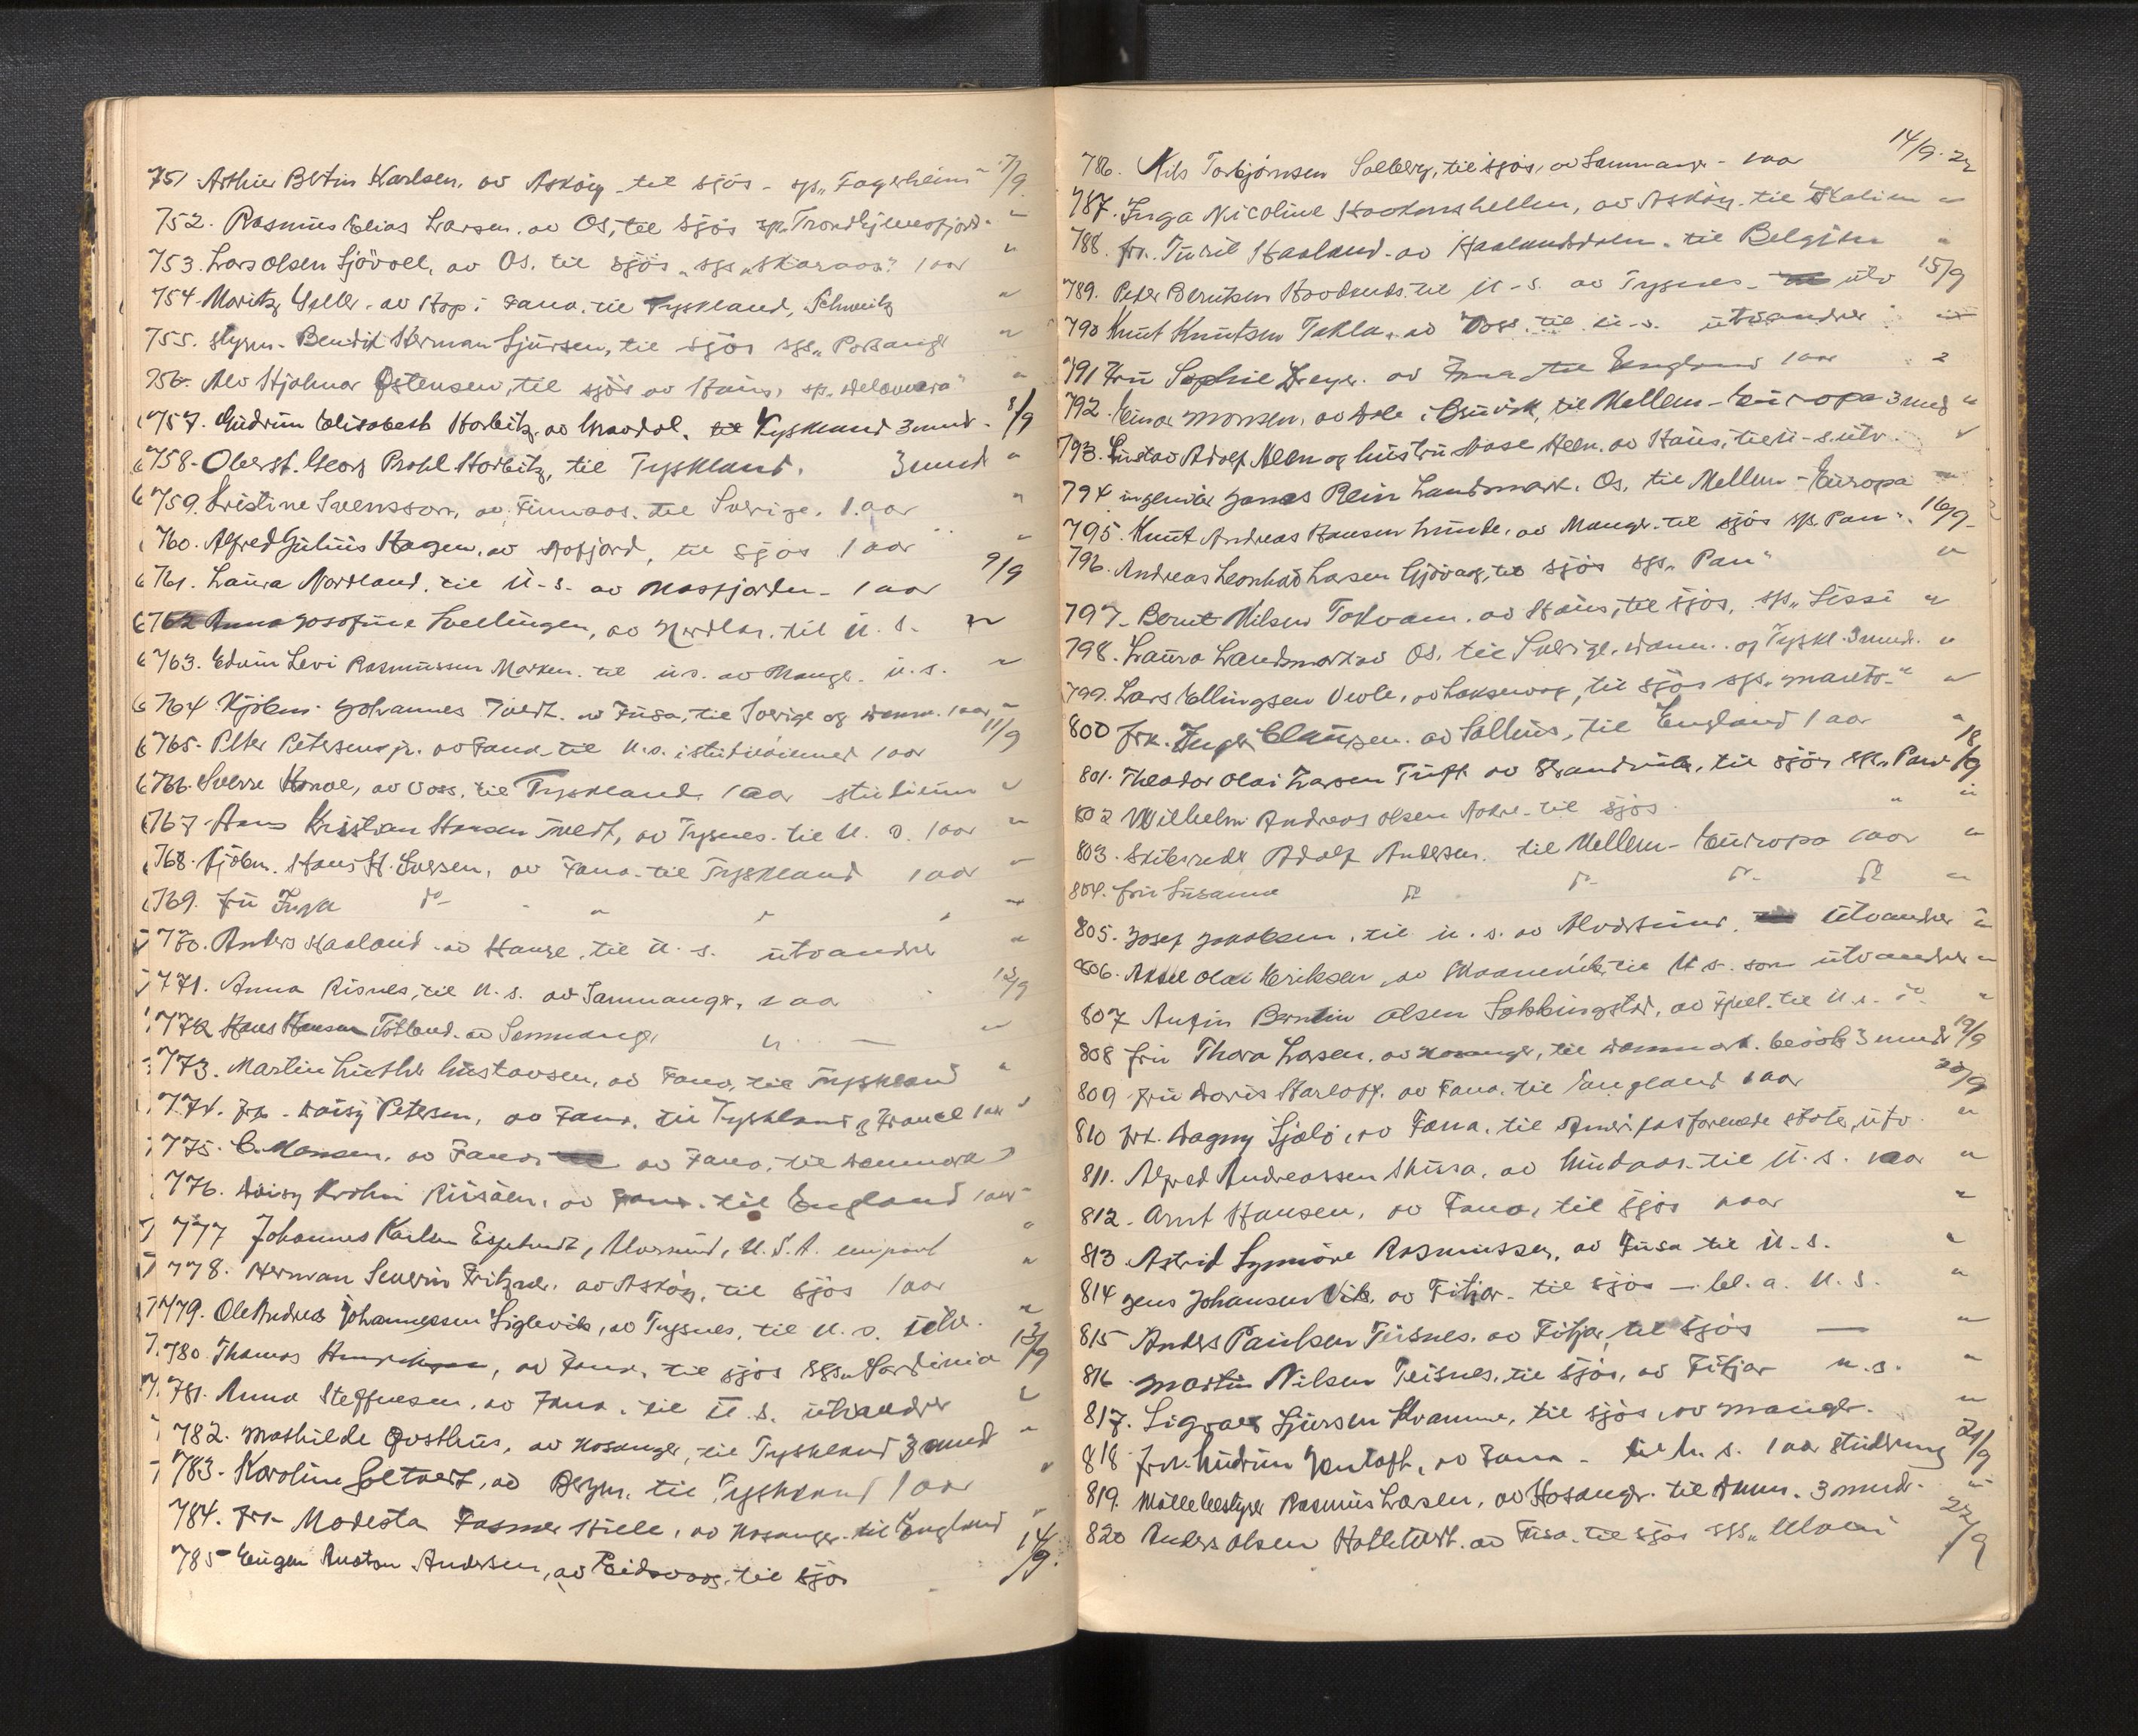 751 Arthur Bertin Karlsen. av Askøy til sjös - sgs. "Fagerheim" 7/9
752. Rasmus Elias Larsen. av Os, til sjös sgs. Trondhjemsfjord. "
753. Lars Olsen Sjövoll, av Os. til sjös sgs. 1 aar "
754. Moritz av Hop i Fana. til Tyskland, Schweitz "
755. Styrm. Bendik Herman Sjursen, til sjös sgs. "
756. Alv Hjalmar Østensen, til sjös av Haus, sgs. "Delaware" "
757. Gudrun Elisabeth Horbitz. av til Tyskland 3 mnd. 8/9
758. Oberst. Georg Prahl Horbitz, til Tyskland. 3 mnd "
759. Kristine Svensson, av Finnaas. til Sverige. 1. aar "
760. Alfred Julius Hagen. av til sjös 1 aar "
761. Laura Nordland. til U.-S. av Masfjorden - 1 aar 9/9
762 Anna Josefine av til U.S. "
763. Edvin Levi Rasmussen Marken. til U.S. av Manger. U.S. "
764. Kjöbm. Johannes Tvedt. av Fusa, til Sverige og Danm. 1 aar "
765. Peter Petersen jr. av Fana til U.S. i 1 aar 11/9
766. Sverre av Voss, til Tyskland. 1 aar studium "
767 Hans Kristian Hansen Tvedt, av Tysnes. til U.S. 1 aar "
768. Kjöbm. Hans H. Iversen, av Fana. til Tyskland 1 aar "
769. Fru Inga do " " " "
770. Anders Haaland av Hauge. til U.S. utvandrer "
771. Anna Risnes, til U.S. av Samnanger, 1 aar 12/9
772 Hans Hansen Totland. av Samnanger " — "
773. Martin Luther Gustavsen, av Fana, til Tyskland "
774. Frk. Daisy Petersen, av Fana. til Tyskland & Frankr 1 aar "
775. C. Monsen, av Fana, av Fana, til Danmark "
776. Daisy Krohn av Fana. til England 1 aar "
777 Johannes Karlsen Espetvedt, Alversund, U.S.A. "
778. Herman Severin Fritzner. av Askøy. til sjös 1 aar "
779. Ole Andreas Johannessen Siglevik, av Tysnes, til U.S. utv. "
780. Thomas av Fana, til sjös sgs. "Sardinia 13/9
781. Anna Steffensen, av Fana. til U.S. utvandrer "
782. Mathilde Østhus, av Hosanger, til Tyskland 3 mnd "
783. Karoline Soltvedt, av Bergen. til Tyskland 1 aar "
784. Frk. Modesta Fasmer av Hosanger. til England "
785. Eugen Anton Andersen, av Eidsvaag. til sjös 14/9.
786. Nils Torbjörnsen Solberg, til sjös, av Samnanger - 1 aar 14/9.22
787. Inga Nicoline Haakonshellen, av Askøy. til Italien "
788. frk. Turid Haaland. av Haalandsdalen. til Belgien "
789. Peter Berntsen til U-S. av Tysnes - utv 15/9
790 Knut Knutsen Takla. av Voss. til U.S. utvandrer "
791 Fru Sophie Dreyer. av Fana til England 1 aar "
792. Einar Monsen, av Dale i Bruvik, til Mellem-Europa 3 mnd "
793. Gustav Adolf og hustru Aase av Haus, til U-S. utv. "
794 ingeniör Jonas Rein Landmark. Os, til Mellem-Europa "
795. Knut Andreas Hansen av Manger. til sjös sgs. Pan ". 16/9.
796. Andreas Leonhard Larsen Gjövaag, til sjös sgs. "Pan" "
797. Bernt Nilsen Tokvam. av Haus, til sjös, sgs. "Sissi "
798. Laura Landmark av Os, til Sverige, Danm. og Tyskl. 3 mnd. "
799. Lars Ellingsen av Laksevaag, til sjös sgs. "
800 frk. Inger Claussen. av til England 1 aar "
801. Theodor Olai Larsen Tuft av Strandvik, til sjös sgs. "Pan 18/9
802 Wilhelm Andreas Olsen til sjös " "
803. Skibsreder Adolf Andersen. til Mellem-Europa 1 aar "
804. fru Susanna do do. do. do "
805. Josef Jakobsen. til U.S. av Alversund. utvandrer "
806. Aksel Olai Eriksen, av til U.S. som utvandrer "
807 Anfin Berntin Olsen av Fjell. til U.S. do. "
808 fru Thora Larsen, av Hosanger, til Danmark. besök 3 mndr 19/9
809 fru Doris av Fana. til England 1 aar 20/9
810 frk. Dagny Sjølø, av Fana. til Amerikas forenede stater, utv. "
811. Alfred Andreassen av Lindaas til U.S. 1 aar "
812. Arnt Hansen, av Fana, til sjös 1 aar "
813 Astrid Synnöve Rasmussen, av Fusa til U.S. "
814 Jens Johansen Vik, av Fitjar. til sjös — bl. a. U.S. "
815 Anders Paulsen Teisnes, av Fitjar, til sjös — "
816 Martin Nilsen Teisnes, til sjös, av Fitjar U.S. "
817. Sigvald Sjursen Kvamme, til sjös, av Manger. "
818 Frk. Gudrun av Fana - til U.S. 1 aar studering 21/9
819. Möllebestyrer Rasmus Larsen, av Hosanger. til Danm. 3 mndr. "
820 Anders Olsen Holdhus. av Fusa. til sjös sgs. " 22/9